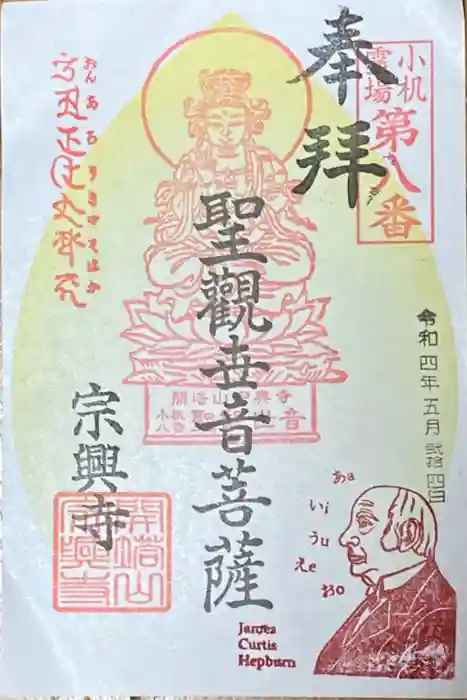 奉拝
小机
霊場
第八番
聖觀世音菩薩
おん あろ りきやそはか
小机
八番
音
令和四年五月弐拾四日
宗興寺
開塔山
宗興寺
あa
いi
うu
えe
おo
James
Curtis
Hepburn